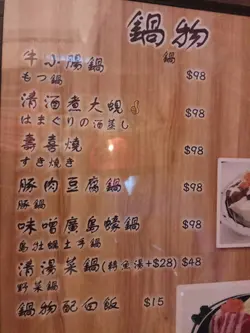 鍋物
牛小腸鍋
鍋
もつ鍋 $98
清酒煮大蜆
はまぐりの酒蒸し $98
壽喜燒
すき焼き $98
豚肉豆腐鍋
豚鍋 $98
味噌廣島蠔鍋
島牡蠣土手鍋 $98
清湯菜鍋(轉魚湯+$28) $48
野菜鍋
鍋物配白飯 $15